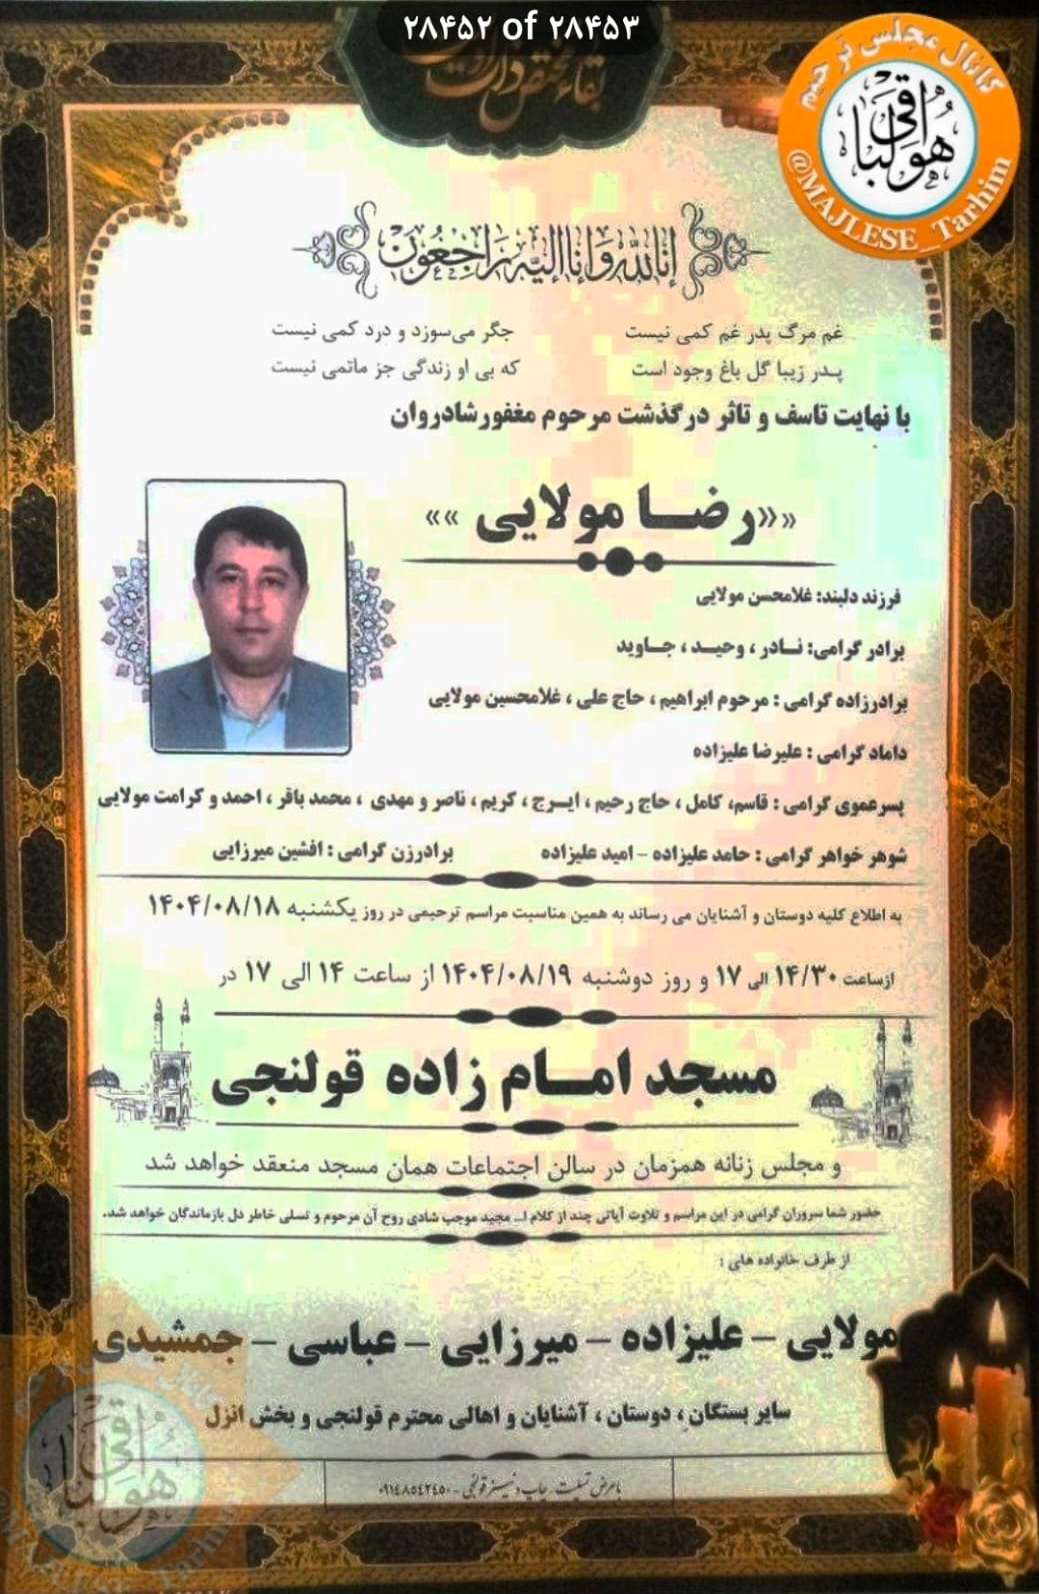 ۲۸۴۵۲ of ۲۸۴۵۳
کانال مجلس ترحیم
هوالباقی
@MAJLESE_Tarhim
انا لله و انا الیه راجعون
غم مرگ پدر غم کمی نیست جگر می‌سوزد و درد کمی نیست
پدر زیبا گل باغ وجود است که بی او زندگی جز ماتمی نیست
با نهایت تاسف و تاثر درگذشت مرحوم مغفورشادروان
««رضا مولایی »»
فرزند دلبند: غلامحسن مولایی
برادر گرامی: نادر ، وحید ، جاوید
برادرزاده گرامی : مرحوم ابراهیم ، حاج علی ، غلامحسین مولایی
داماد گرامی : علیرضا علیزاده
پسرعموی گرامی : قاسم، کامل ، حاج رحیم ، ایرج ، کریم ، ناصر و مهدی ، محمد باقر ، احمد و کرامت مولایی
شوهر خواهر گرامی : حامد علیزاده - امید علیزاده برادرزن گرامی : افشین میرزایی
به اطلاع کلیه دوستان و آشنایان می رساند به همین مناسبت مراسم ترحیمی در روز یکشنبه ۱۴۰۴/۰۸/۱۸
ازساعت ۱۴/۳۰ الی ۱۷ و روز دوشنبه ۱۴۰۴/۰۸/۱۹ از ساعت ۱۴ الی ۱۷ در
مسجد امام زاده قولنجی
و مجلس زنانه همزمان در سالن اجتماعات همان مسجد منعقد خواهد شد
حضور شما سروران گرامی در این مراسم و تلاوت آیاتی چند از کلام ا... مجید موجب شادی روح آن مرحوم و تسلی خاطر دل بازماندگان خواهد شد.
از طرف خانواده های :
مولایی - علیزاده - میرزایی - عباسی - جمشیدی
سایر بستگان، دوستان ، آشنایان و اهالی محترم قولنجی و بخش انزل
با عرض تسلیت چاپ و نیستر قولنجی - ۰۹۱۴۸۵۴۲۴۵۰
هوالباقی